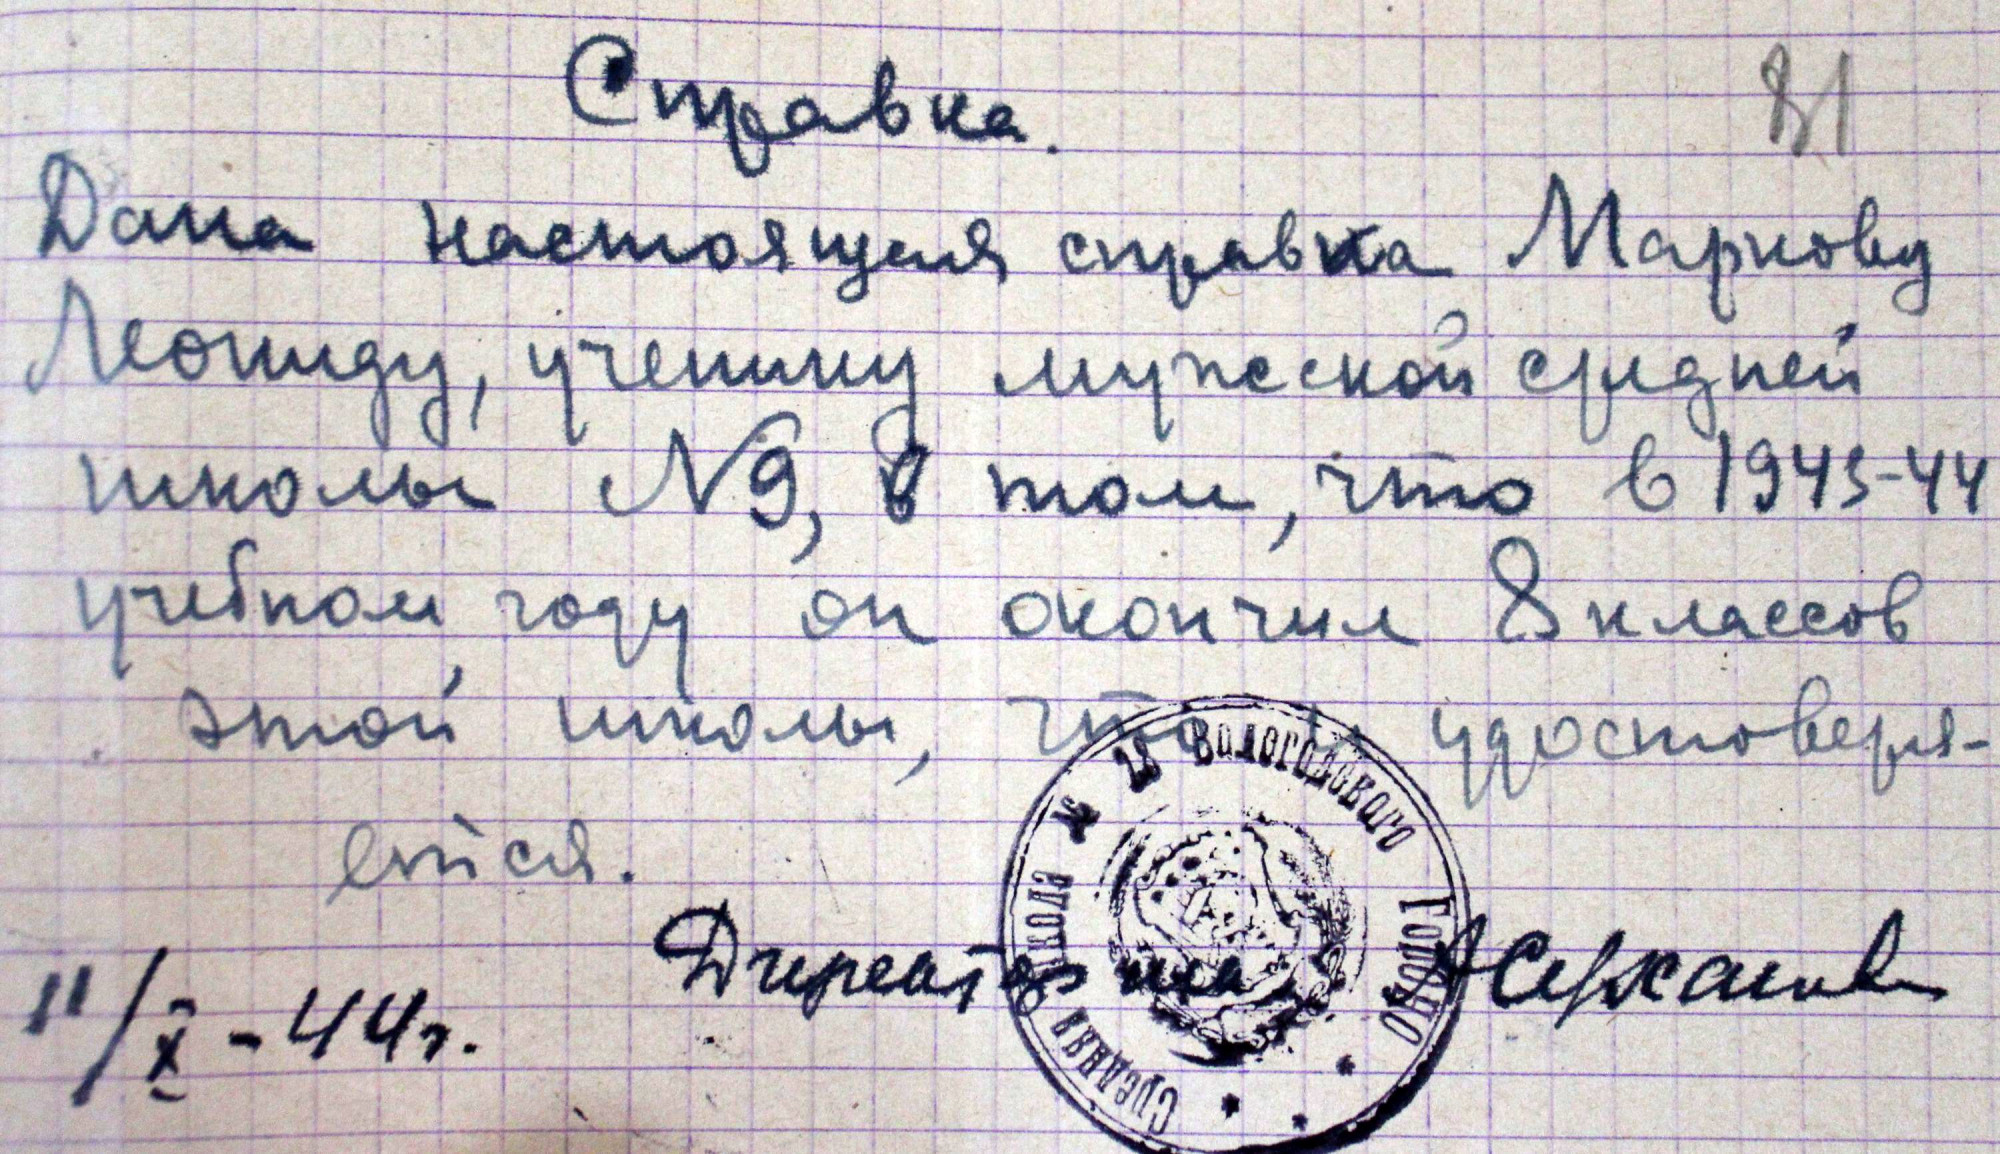 Справка.
81
Дана настоящая справка Маркову
Леониду, ученику мужской средней
школы N9, в том, что в 1943-44
учебном году он окончил 8 классов
этой школы, что и удостоверя-
ется.
Директор
11/X - 44г.
Средняя школа Вологодского ГорОНО